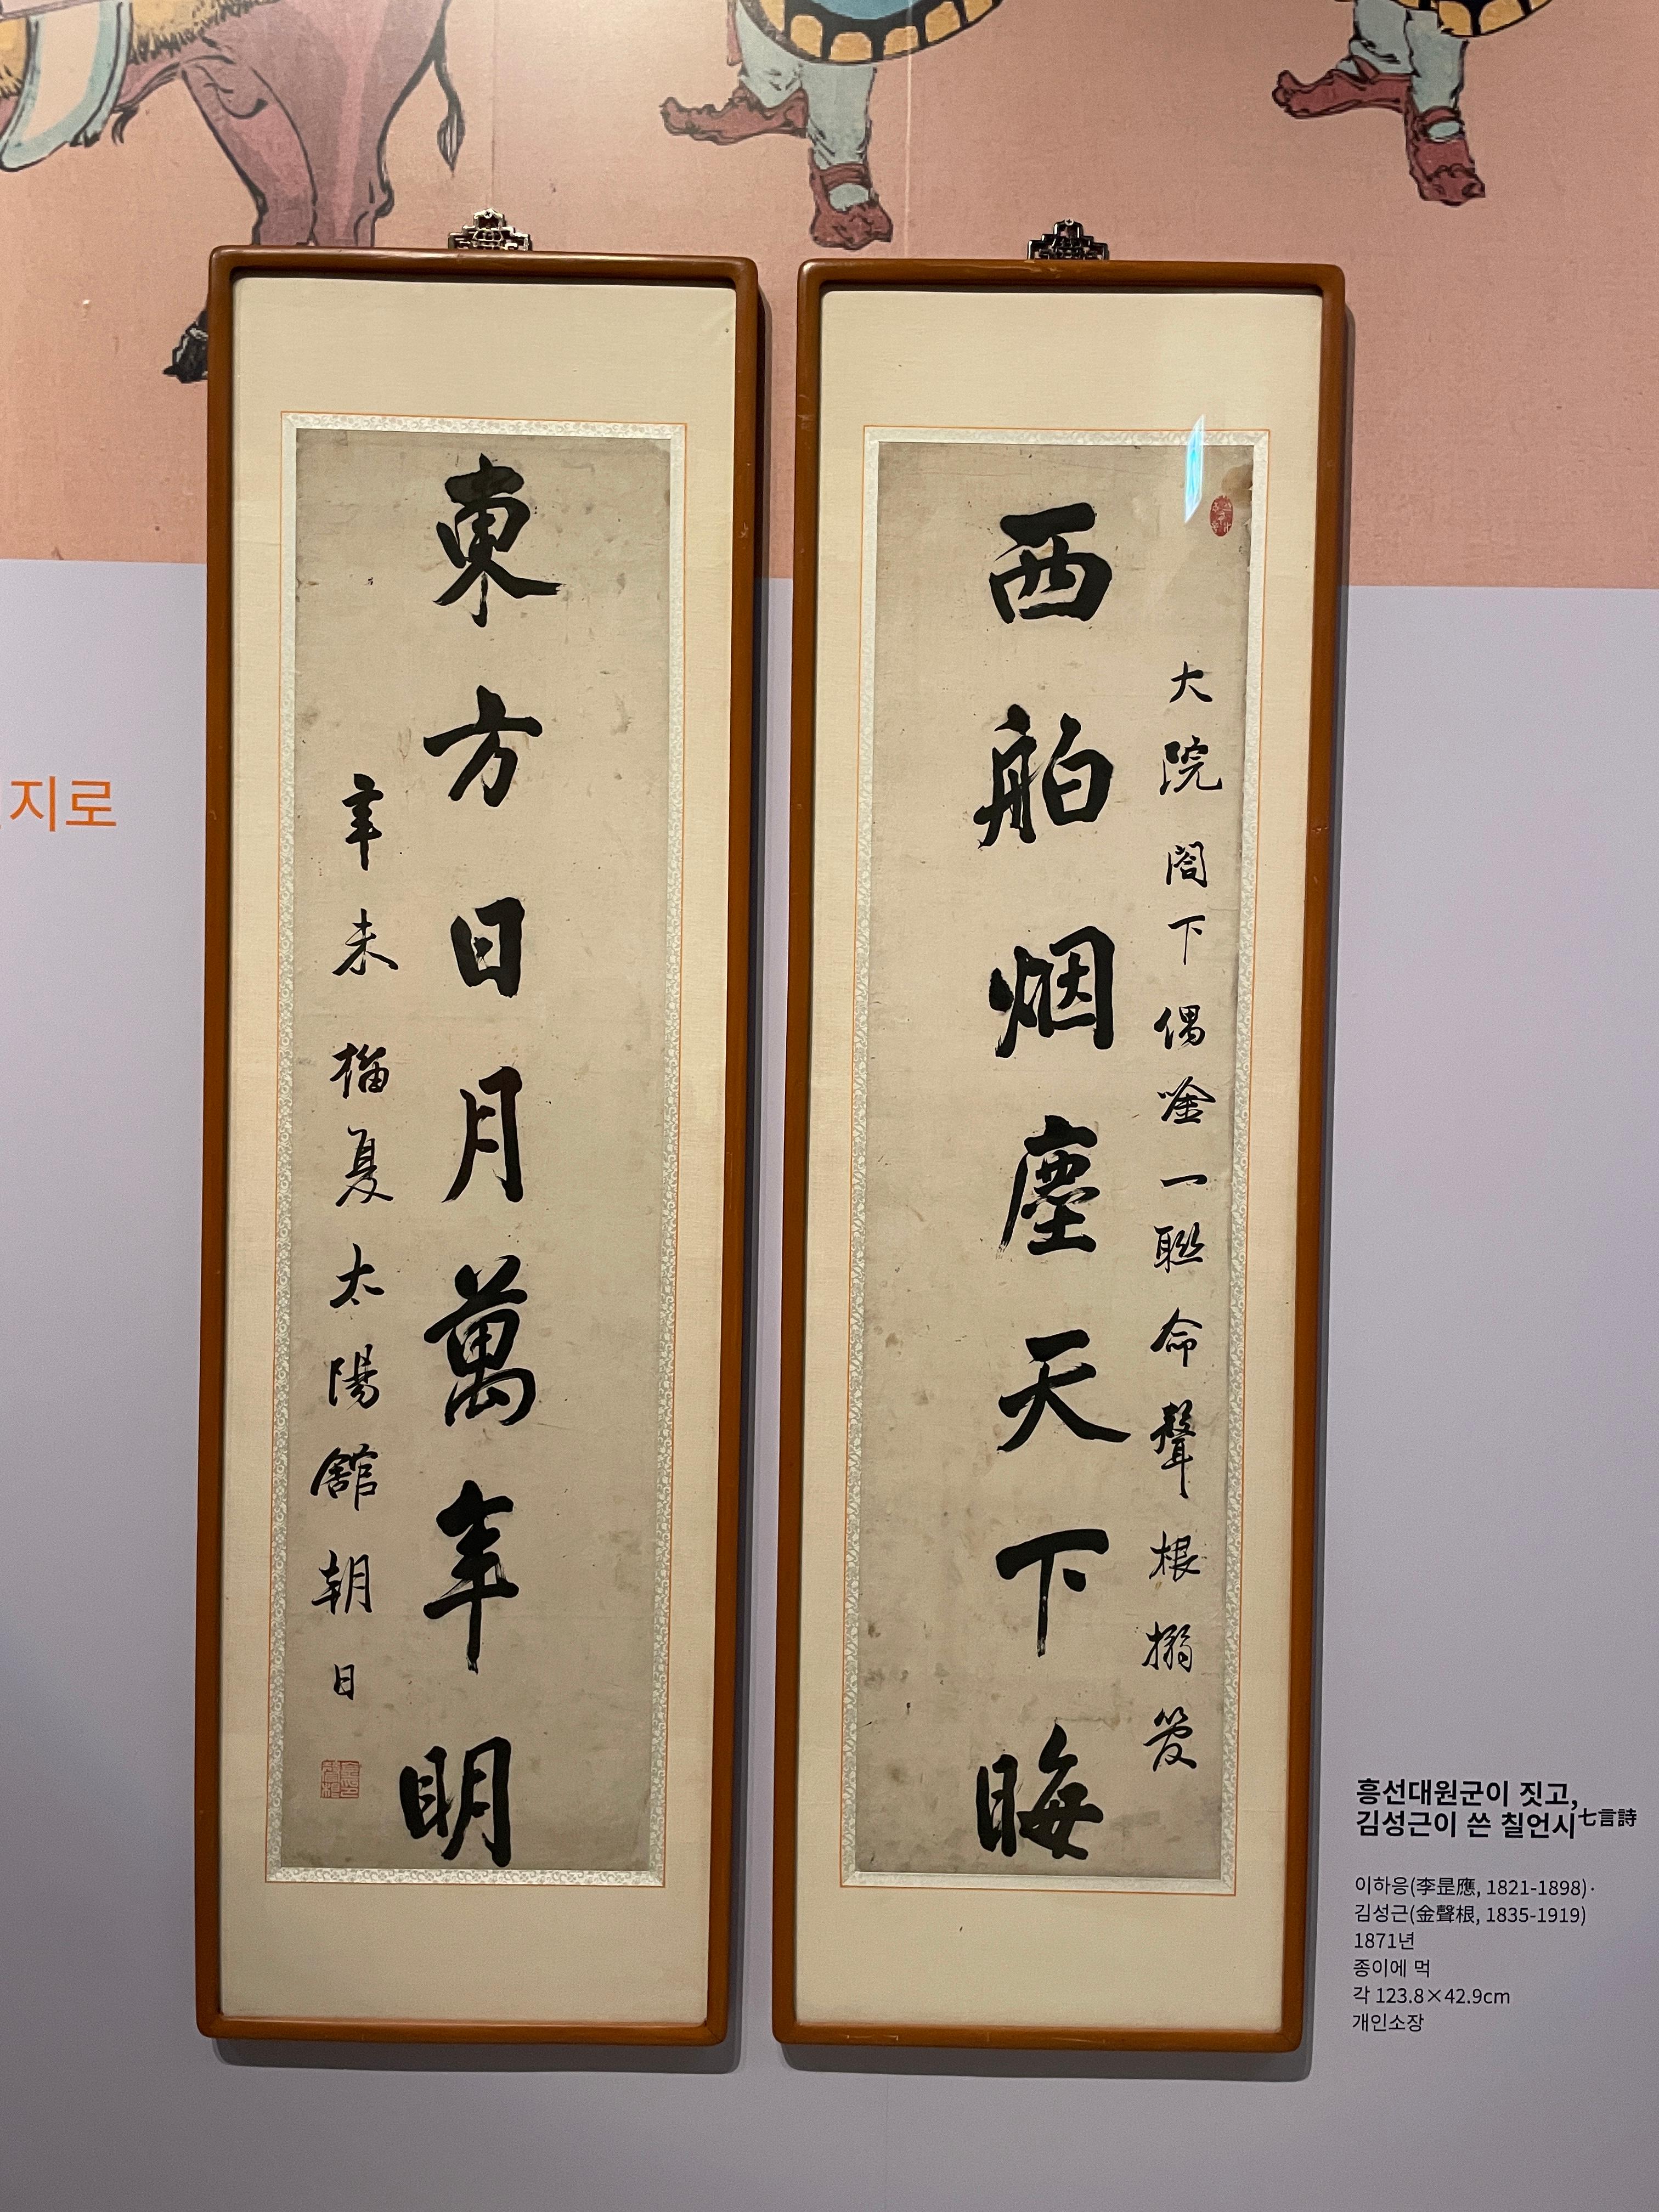 西舶烟塵天下晦
大院閤下偶唫一聮命聲根搦管
東方日月萬年明
辛未榴夏太陽館朝日
지로
흥선대원군이 짓고,
김성근이 쓴 칠언시七言詩
이하응(李昰應, 1821-1898)·
김성근(金聲根, 1835-1919)
1871년
종이에 먹
각 123.8×42.9cm
개인소장